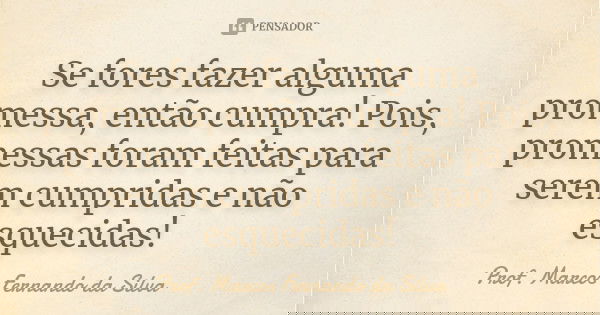 PENSADOR
Se fores fazer alguma
promessa, então cumpra! Pois,
promessas foram feitas para
serem cumpridas e não
esquecidas!
Prof. Marcos Fernando da Silva